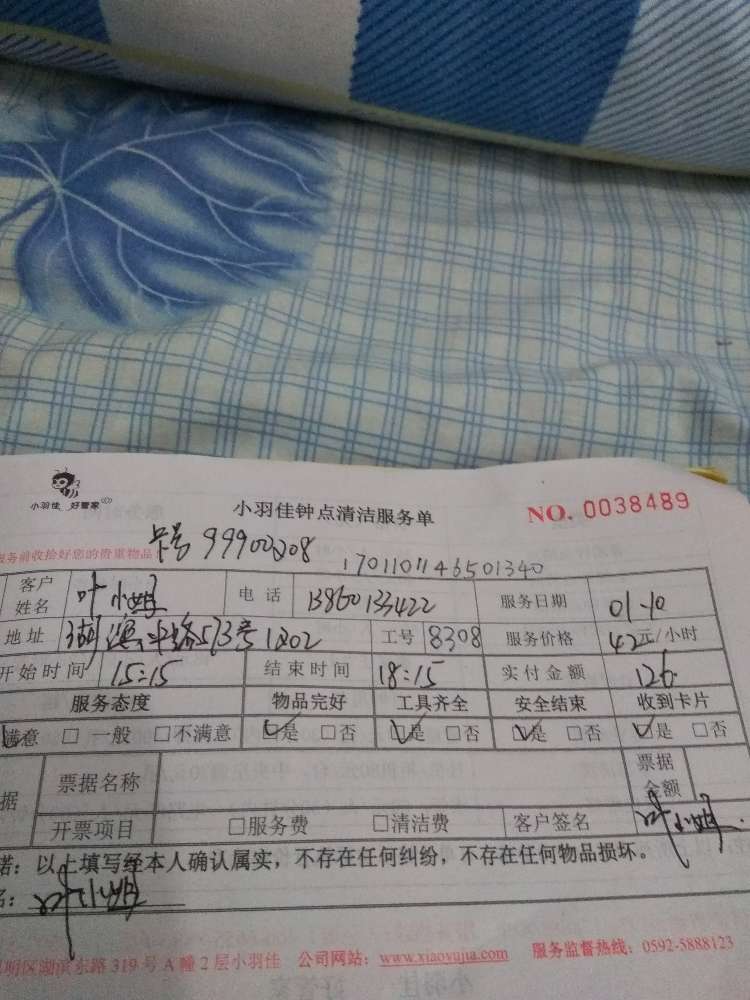 小羽佳 好管家
小羽佳钟点清洁服务单
NO. 0038489
服务前收拾好您的贵重物品
卡号 99900208
1701101146501340
客户姓名 叶小姐 电话 13860133422 服务日期 01-10
地址 573号1202 工号 8308 服务价格 42元/小时
开始时间 15:15 结束时间 18:15 实付金额 126
服务态度 物品完好 工具齐全 安全结束 收到卡片
满意 □ 一般 □不满意 ☑是 □否 ☑是 □否 ☑是 □否 ☑是 □否
据 票据名称 票据金额
开票项目 □服务费 □清洁费 客户签名 叶小姐
诺：以上填写经本人确认属实，不存在任何纠纷，不存在任何物品损坏。
名：叶小姐
明区湖滨东路319号A幢2层小羽佳 公司网站：www.xiaoyujia.com 服务监督热线：0592-5888123